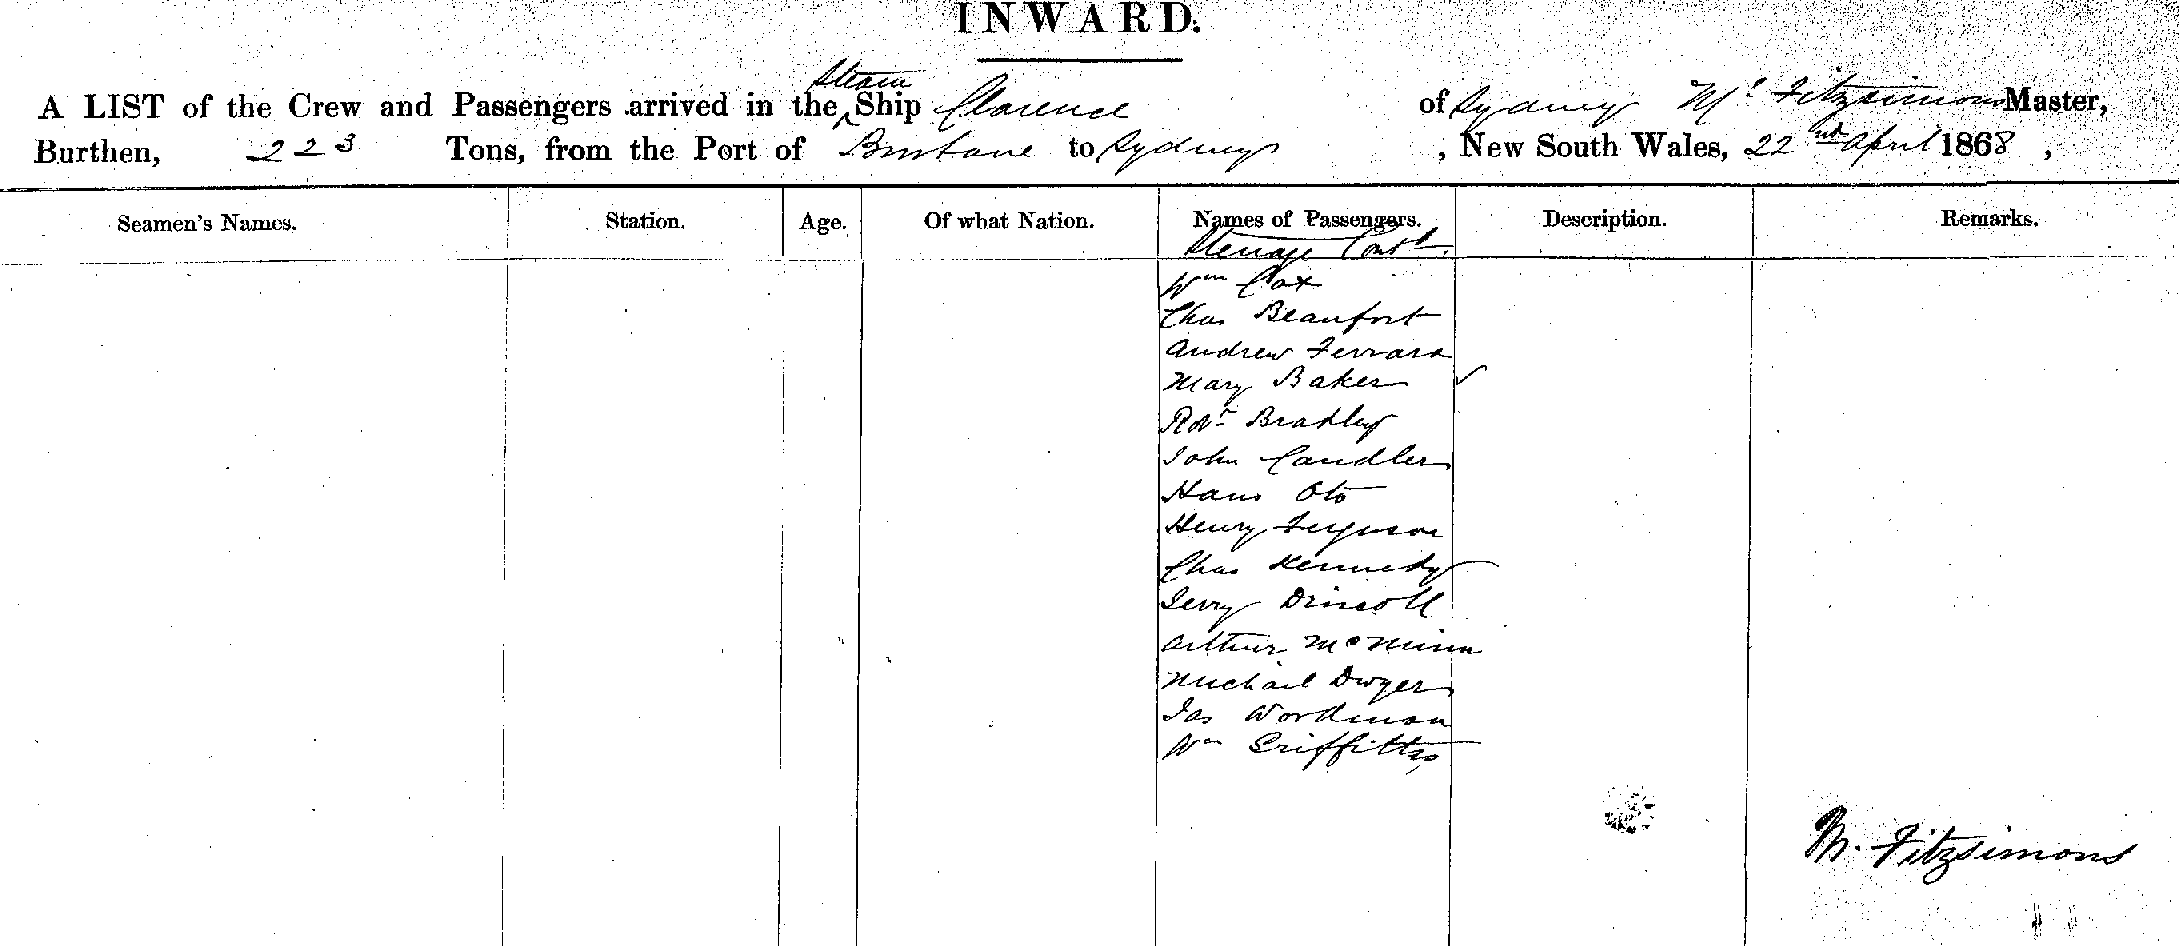 INWARD.
Steam
A LIST of the Crew and Passengers arrived in the Ship Clarence of Sydney Mc Fitzsimons Master,
Burthen, 223 Tons, from the Port of Brisbane to Sydney, New South Wales, 22nd April 1868,
Seamen's Names. Station. Age. Of what Nation. Names of Passengers. Description. Remarks.
Steerage Contd.
Wm Cox
Chas Beaufort
Andrew Ferrara
Mary Baker
Robt Bradley
John Candler
Hans Oto
Henry Ferguson
Chas Kennedy
Jerry Driscoll
Arthur McMinn
Michael Dwyer
Jas Wordman
Wm Griffitts
M. Fitzsimons